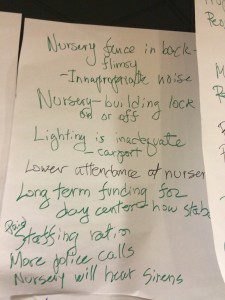 Nursery fence in back-
flimsy
-Innapropriate noise
Nursery-building lock
on or off
Lighting is inadequate
- carport
Lower attendance of nurser
Long term funding for
day center - how stab
Staffing ratio
More police calls
Nursery will hear Sirens